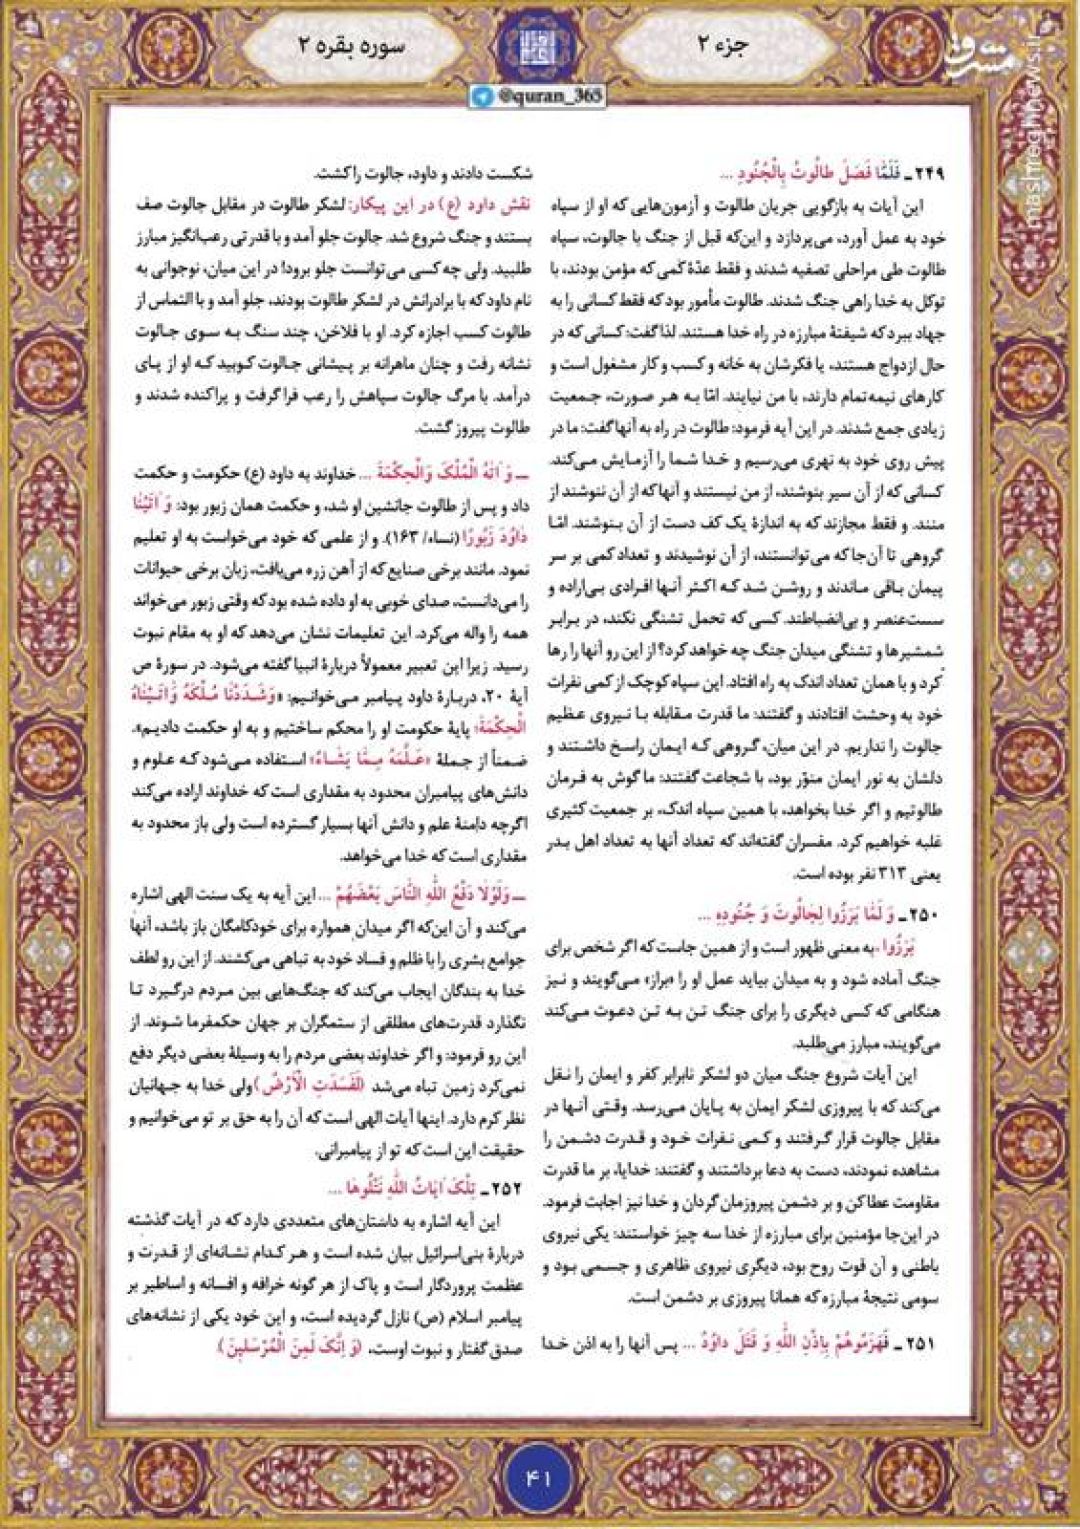 جزء ۲
سوره بقره ۲
@quran_365
مشرق
mashreghnews.ir
۲۴۹ـ فَلَمّٰا فَصَلَ طالُوتُ بِالْجُنُودِ ...
این آیات به بازگویی جریان طالوت و آزمون‌هایی که او از سپاه
خود به عمل آورد، می‌پردازد و این‌که قبل از جنگ با جالوت، سپاه
طالوت طی مراحلی تصفیه شدند و فقط عدّهٔ کَمی که مؤمن بودند، با
توکل به خدا راهی جنگ شدند. طالوت مأمور بود که فقط کسانی را به
جهاد ببرد که شیفتهٔ مبارزه در راه خدا هستند. لذا گفت: کسانی که در
حال ازدواج هستند، یا فکرشان به خانه و کسب و کار مشغول است و
کارهای نیمه‌تمام دارند، با من نیایند. امّا به هر صورت، جمعیت
زیادی جمع شدند. در این آیه فرمود: طالوت در راه به آنها گفت: ما در
پیش روی خود به نهری می‌رسیم و خدا شما را آزمایش می‌کند.
کسانی که از آن سیر بنوشند، از من نیستند و آنها که از آن ننوشند از
منند. و فقط مجازند که به اندازهٔ یک کف دست از آن بنوشند. امّا
گروهی تا آن‌جا که می‌توانستند، از آن نوشیدند و تعداد کمی بر سر
پیمان باقی ماندند و روشن شد که اکثر آنها افرادی بی‌اراده و
سست‌عنصر و بی‌انضباطند. کسی که تحمل تشنگی نکند، در برابر
شمشیرها و تشنگی میدان جنگ چه خواهد کرد؟ از این رو آنها را رها
کرد و با همان تعداد اندک به راه افتاد. این سپاه کوچک از کمی نفرات
خود به وحشت افتادند و گفتند: ما قدرت مقابله با نیروی عظیم
جالوت را نداریم. در این میان، گروهی که ایمان راسخ داشتند و
دلشان به نور ایمان منوّر بود، با شجاعت گفتند: ما گوش به فرمان
طالوتیم و اگر خدا بخواهد، با همین سپاه اندک، بر جمعیت کثیری
غلبه خواهیم کرد. مفسران گفته‌اند که تعداد آنها به تعداد اهل بدر
یعنی ۳۱۳ نفر بوده است.
۲۵۰ـ وَ لَمّٰا بَرَزُوا لِجالُوتَ وَ جُنُودِهِ ...
بَرَزُوا، به معنی ظهور است و از همین جاست که اگر شخص برای
جنگ آماده شود و به میدان بیاید عمل او را «براز» می‌گویند و نیز
هنگامی که کسی دیگری را برای جنگ تن به تن دعوت می‌کند
می‌گویند، مبارز می‌طلبد.
این آیات شروع جنگ میان دو لشکر نابرابر کفر و ایمان را نقل
می‌کند که با پیروزی لشکر ایمان به پایان می‌رسد. وقتی آنها در
مقابل جالوت قرار گرفتند و کمی نفرات خود و قدرت دشمن را
مشاهده نمودند، دست به دعا برداشتند و گفتند: خدایا، بر ما قدرت
مقاومت عطا کن و بر دشمن پیروزمان گردان و خدا نیز اجابت فرمود.
در این‌جا مؤمنین برای مبارزه از خدا سه چیز خواستند: یکی نیروی
باطنی و آن قوت روح بود، دیگری نیروی ظاهری و جسمی بود و
سومی نتیجهٔ مبارزه که همانا پیروزی بر دشمن است.
۲۵۱ـ فَهَزَمُوهُمْ بِإذْنِ اللّٰهِ وَ قَتَلَ داوُدُ ... پس آنها را به اذن خدا
شکست دادند و داود، جالوت را کشت.
نقش داود (ع) در این پیکار: لشکر طالوت در مقابل جالوت صف
بستند و جنگ شروع شد. جالوت جلو آمد و با قدرتی رعب‌انگیز مبارز
طلبید. ولی چه کسی می‌توانست جلو برود! در این میان، نوجوانی به
نام داود که با برادرانش در لشکر طالوت بودند، جلو آمد و با التماس از
طالوت کسب اجازه کرد. او با فلاخن، چند سنگ به سوی جالوت
نشانه رفت و چنان ماهرانه بر پیشانی جالوت کوبید که او از پای
درآمد. با مرگ جالوت سپاهش را رعب فرا گرفت و پراکنده شدند و
طالوت پیروز گشت.
ـ وَ اٰتٰهُ الْمُلْکَ وَالْحِکْمَةَ ... خداوند به داود (ع) حکومت و حکمت
داد و پس از طالوت جانشین او شد، و حکمت همان زبور بود: وَ اٰتَیْنٰا
دٰاوُدَ زَبُورًا (نساء/ ۱۶۳). و از علمی که خود می‌خواست به او تعلیم
نمود. مانند برخی صنایع که از آهن زره می‌بافت، زبان برخی حیوانات
را می‌دانست، صدای خوبی به او داده شده بود که وقتی زبور می‌خواند
همه را واله می‌کرد. این تعلیمات نشان می‌دهد که او به مقام نبوت
رسید. زیرا این تعبیر معمولاً دربارهٔ انبیا گفته می‌شود. در سورهٔ ص
آیهٔ ۲۰، دربارهٔ داود پیامبر می‌خوانیم: «وَشَدَدْنٰا مُلْکَهُ وَاٰتَیْنٰاهُ
الْحِکْمَةَ؛ پایهٔ حکومت او را محکم ساختیم و به او حکمت دادیم».
ضمناً از جملهٔ «عَلَّمَهُ مِمّٰا یَشٰاءُ» استفاده می‌شود که علوم و
دانش‌های پیامبران محدود به مقداری است که خداوند اراده می‌کند
اگرچه دامنهٔ علم و دانش آنها بسیار گسترده است ولی باز محدود به
مقداری است که خدا می‌خواهد.
ـ وَلَوْلاٰ دَفْعُ اللّٰهِ النّٰاسَ بَعْضَهُمْ ... این آیه به یک سنت الهی اشاره
می‌کند و آن این‌که اگر میدان همواره برای خودکامگان باز باشد، آنها
جوامع بشری را با ظلم و فساد خود به تباهی می‌کشند. از این رو لطف
خدا به بندگان ایجاب می‌کند که جنگ‌هایی بین مردم درگیرد تا
نگذارد قدرت‌های مطلقی از ستمگران بر جهان حکمفرما شوند. از
این رو فرمود: و اگر خداوند بعضی مردم را به وسیلهٔ بعضی دیگر دفع
نمی‌کرد زمین تباه می‌شد (لَفَسَدَتِ الْاَرْضُ) ولی خدا به جهانیان
نظر کرم دارد. اینها آیات الهی است که آن را به حق بر تو می‌خوانیم و
حقیقت این است که تو از پیامبرانی.
۲۵۲ـ تِلْکَ اٰیٰاتُ اللّٰهِ نَتْلُوهٰا ...
این آیه اشاره به داستان‌های متعددی دارد که در آیات گذشته
دربارهٔ بنی‌اسرائیل بیان شده است و هر کدام نشانه‌ای از قدرت و
عظمت پروردگار است و پاک از هر گونه خرافه و افسانه و اساطیر بر
پیامبر اسلام (ص) نازل گردیده است، و این خود یکی از نشانه‌های
صدق گفتار و نبوت اوست، (وَ اِنَّکَ لَمِنَ الْمُرْسَلینَ).
۴۱